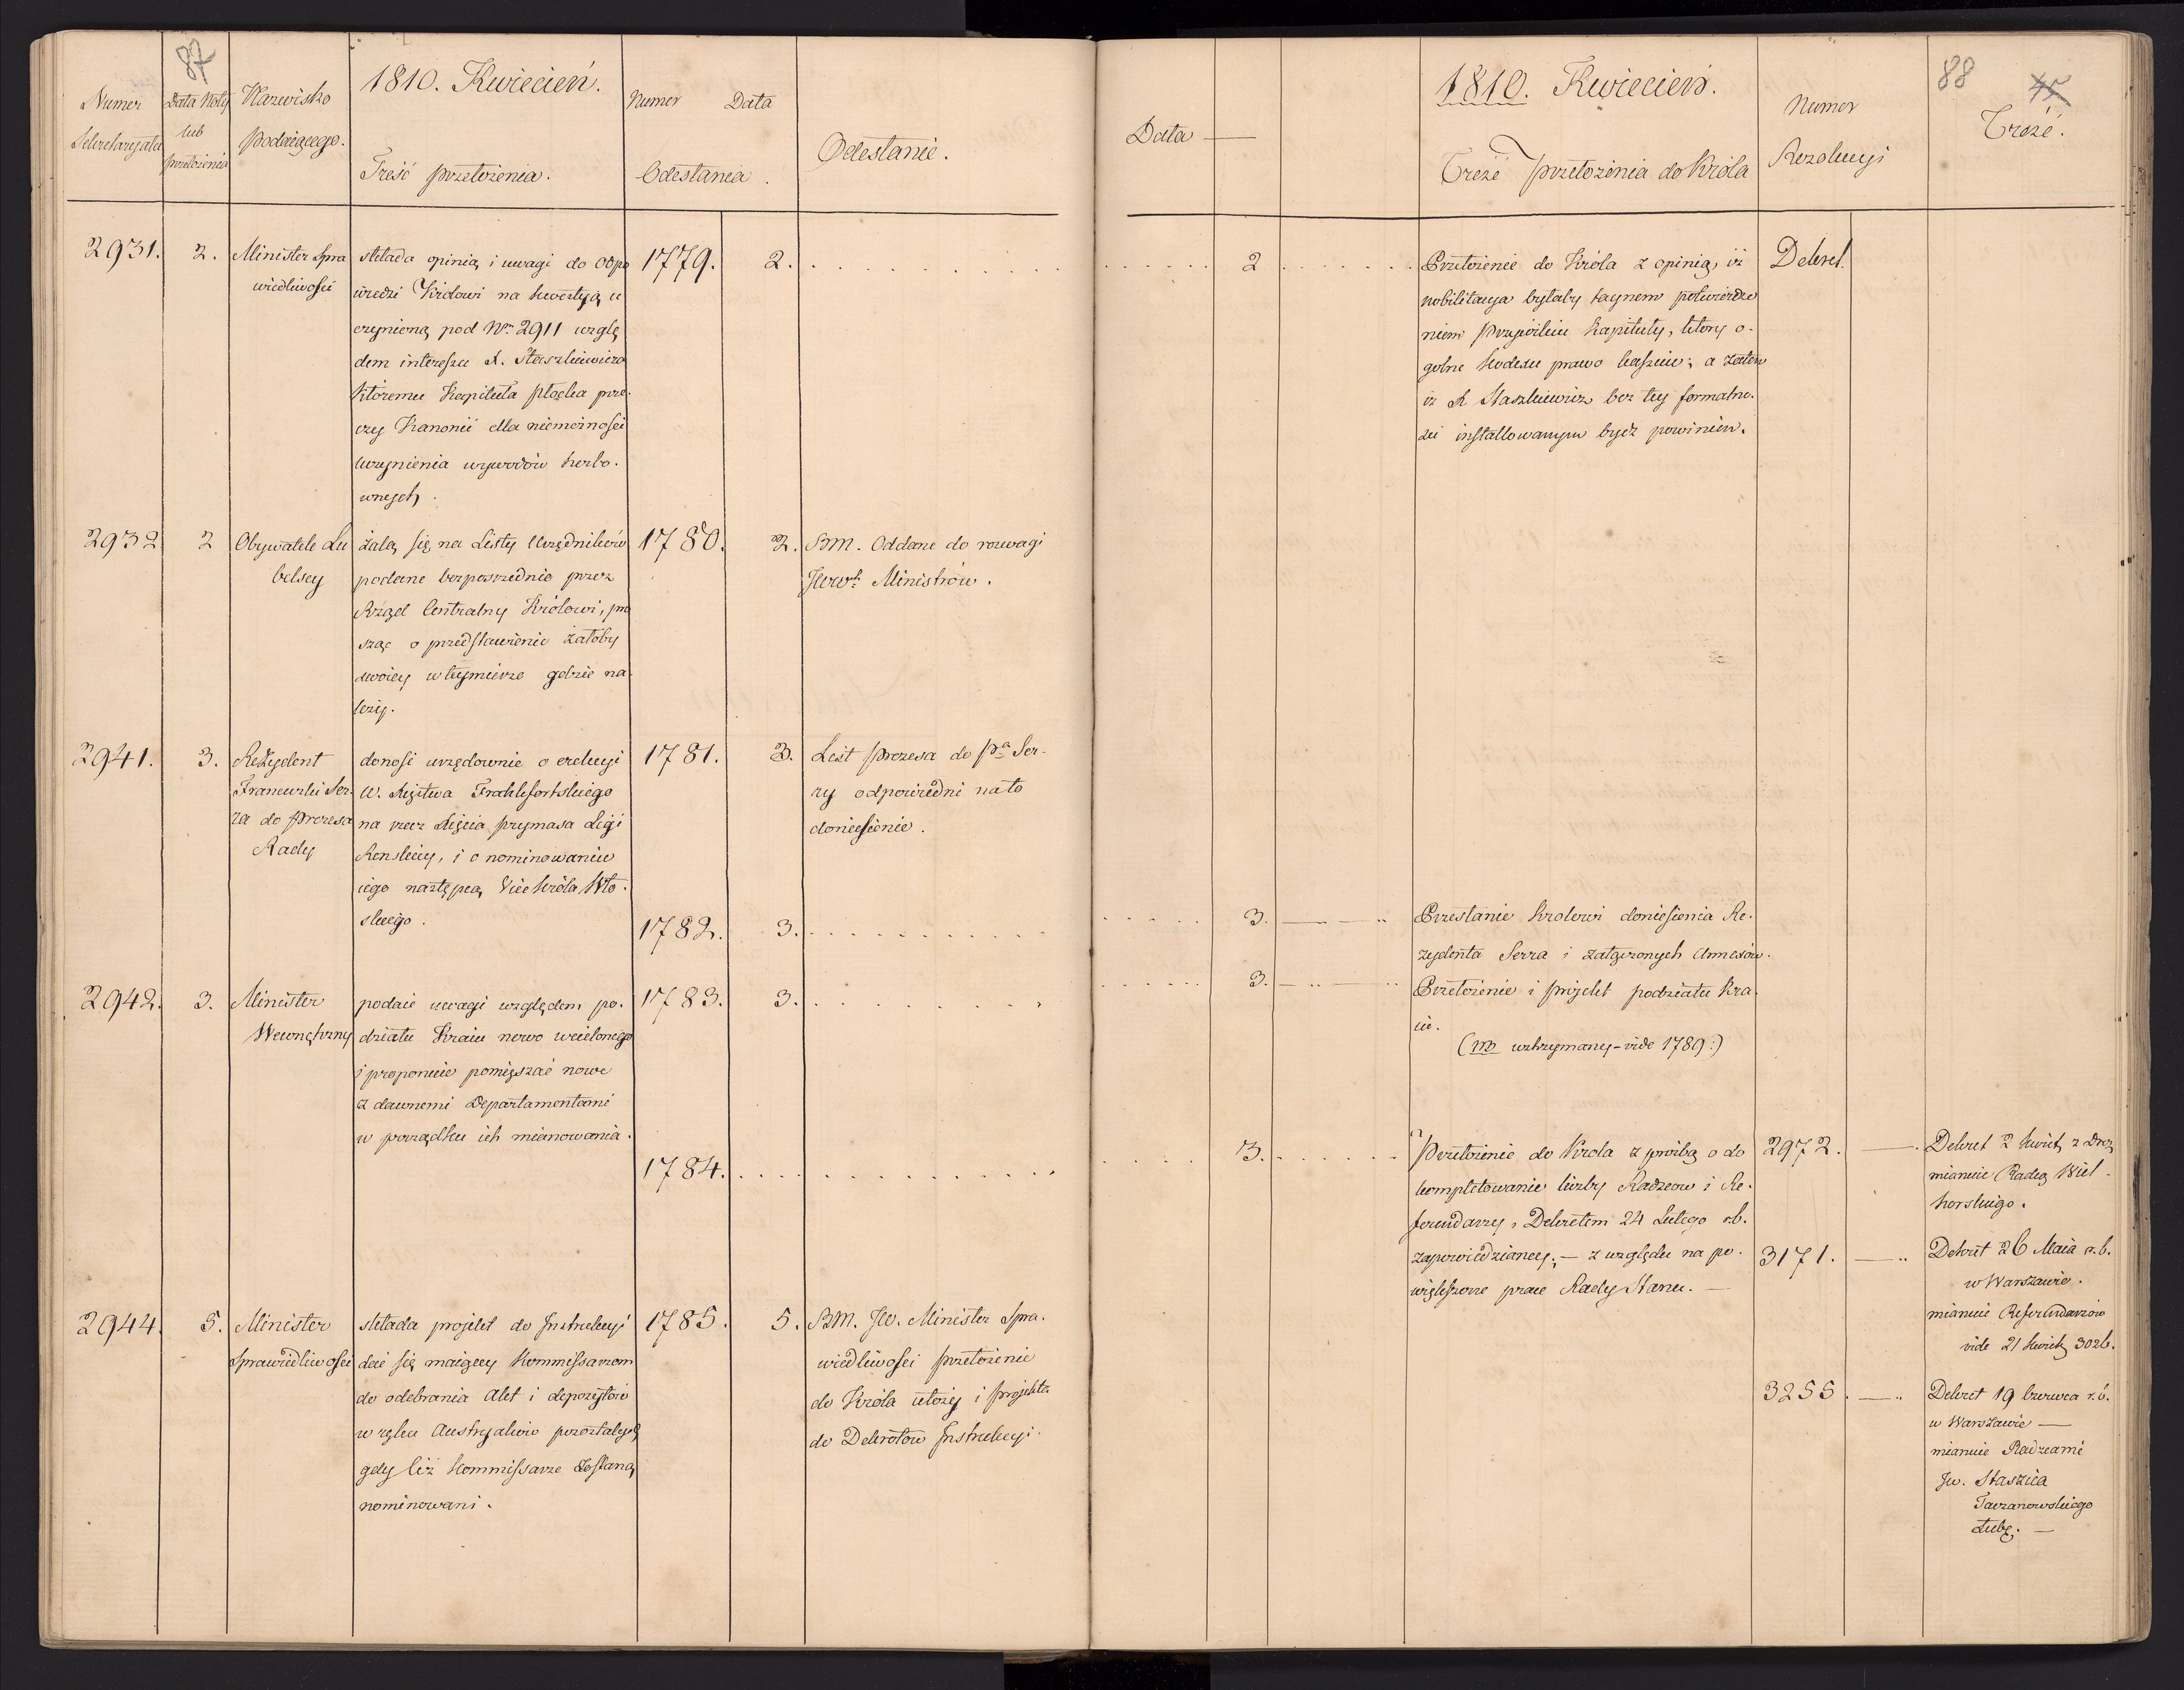 87
1810. Kwiecień.
Numer Sekretaryatu
Data Noty lub przełożenia
Nazwisko Podaiącego.
Treść przełożenia.
Numer Data
Odesłania.
Odesłanie.
2931. 2. Minister Spra
wiedliwości
składa opinią i uwagi do odpo
wiedzi Królowi na kwestyą u
czynioną pod Nrm 2911 wzglę
dem interessu X. Staszkiewicza
któremu Kapituła płocka prze
czy Kanonii dla niemożności
uczynienia wywodów herbo.
wnych.
1779. 2.
2932 2 Obywatele Lu
belscy
żalą się na Listy Urzędników
podane bezpośrednio przez
Rząd Centralny Królowi, pro
sząc o przedstawienie żałoby
swoiey w teymierze gdzie na
leży.
1780. 2. BM. Oddane do rozwagi
JWW Ministrów.
2941. 3. Rezydent
Francuzki Ser
ra do Prezesa
Rady
donosi urzędownie o erekcyi
W. Xięstwa Frankfortskiego
na rzecz Xięcia prymasa Ligi
Renskiey, i o nominowaniu
iego następcą Vice Króla Wło.
skiego.
1781. 3. List Prezesa do Pa Ser-
ry odpowiedni na to
doniesienie.
1782. 3.
2942. 3. Minister
Wewnętrzny
podaie uwagi względem po.
działu Kraiu nowo wcielonego
i proponuie pomięszać nowe
z dawnemi Departamentami
w porządku ich mianowania.
1783. 3.
1784.
2944. 5. Minister
Sprawiedliwości
składa projekt do Instrukcyi
dać się maiącey Kommissarzom
do odebrania Akt i depozytów
w ręku Austryaków pozostałych
gdy liż Kommissarze zostaną
nominowani.
1785. 5. BM. JW. Minister Spra.
wiedliwości przełożenie
do Króla ułoży i projekta
do Dekretów Instrukcyi.
88
45
Data
1810. Kwiecień.
Treść przełożenia do Króla
Numer
Rezolucyi
Treść.
2 Przełożenie do Króla z opinią, iż
nobilitacya byłaby taynem potwierdze
niem Przywileiu Kapituły, który o-
golne Kodexu prawo kassuie; a zatem
iż X Staszkiewicz bez tey formalno.
ści installowanym bydź powinien.
Dekret.
3. Przesłanie Krolowi doniesienia Re.
zydenta Serra i załączonych Annexów.
3. Przełożenie i projekt podziału Kra.
iu.
(NB wstrzymany - vide 1789:)
3. Przełożenie do Krola z prośbą o do
kompletowanie liczby Radzcow i Re.
ferendarzy, Dekretem 24 Lutego r.b.
zapowiedzianey; — z względu na po.
większone prace Rady Stanu. —
2972. — Dekret 2 Kwiet. z Drez
mianuie Radcą Wiel-
horskiego.
3171. — Dekret 26 Maia r.b.
w Warszawie.
mianuie Referendarzów
vide 21 Kwiet. 3026.
3255. — Dekret 19 Czerwca r.b.
w Warszawie —
mianuie Radzcami
JW. Staszica
Tarzanowskiego
Łubę. —